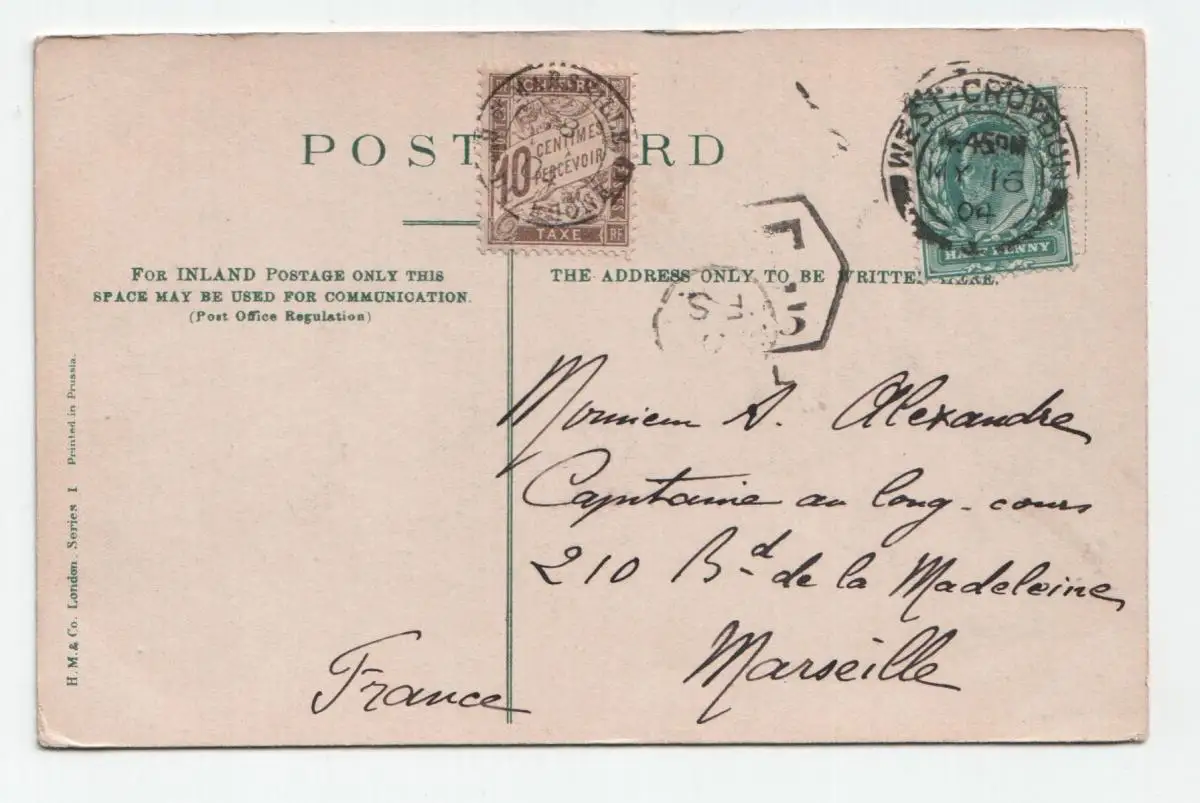 POST CARD
CHIFFRE
10 CENTIMES
À PERCEVOIR
TAXE RF
MARSEILLE
RHONE
WEST-CROYDON
45PM
MY 16
04
HALFPENNY
FOR INLAND POSTAGE ONLY THIS
SPACE MAY BE USED FOR COMMUNICATION.
(Post Office Regulation)
THE ADDRESS ONLY TO BE WRITTEN HERE.
L
F.S.
Monsieur A. Alexandre
Capitaine au long-cours
210 Bd de la Madeleine
Marseille
France
H.M. & Co. London. Series I Printed in Prussia.